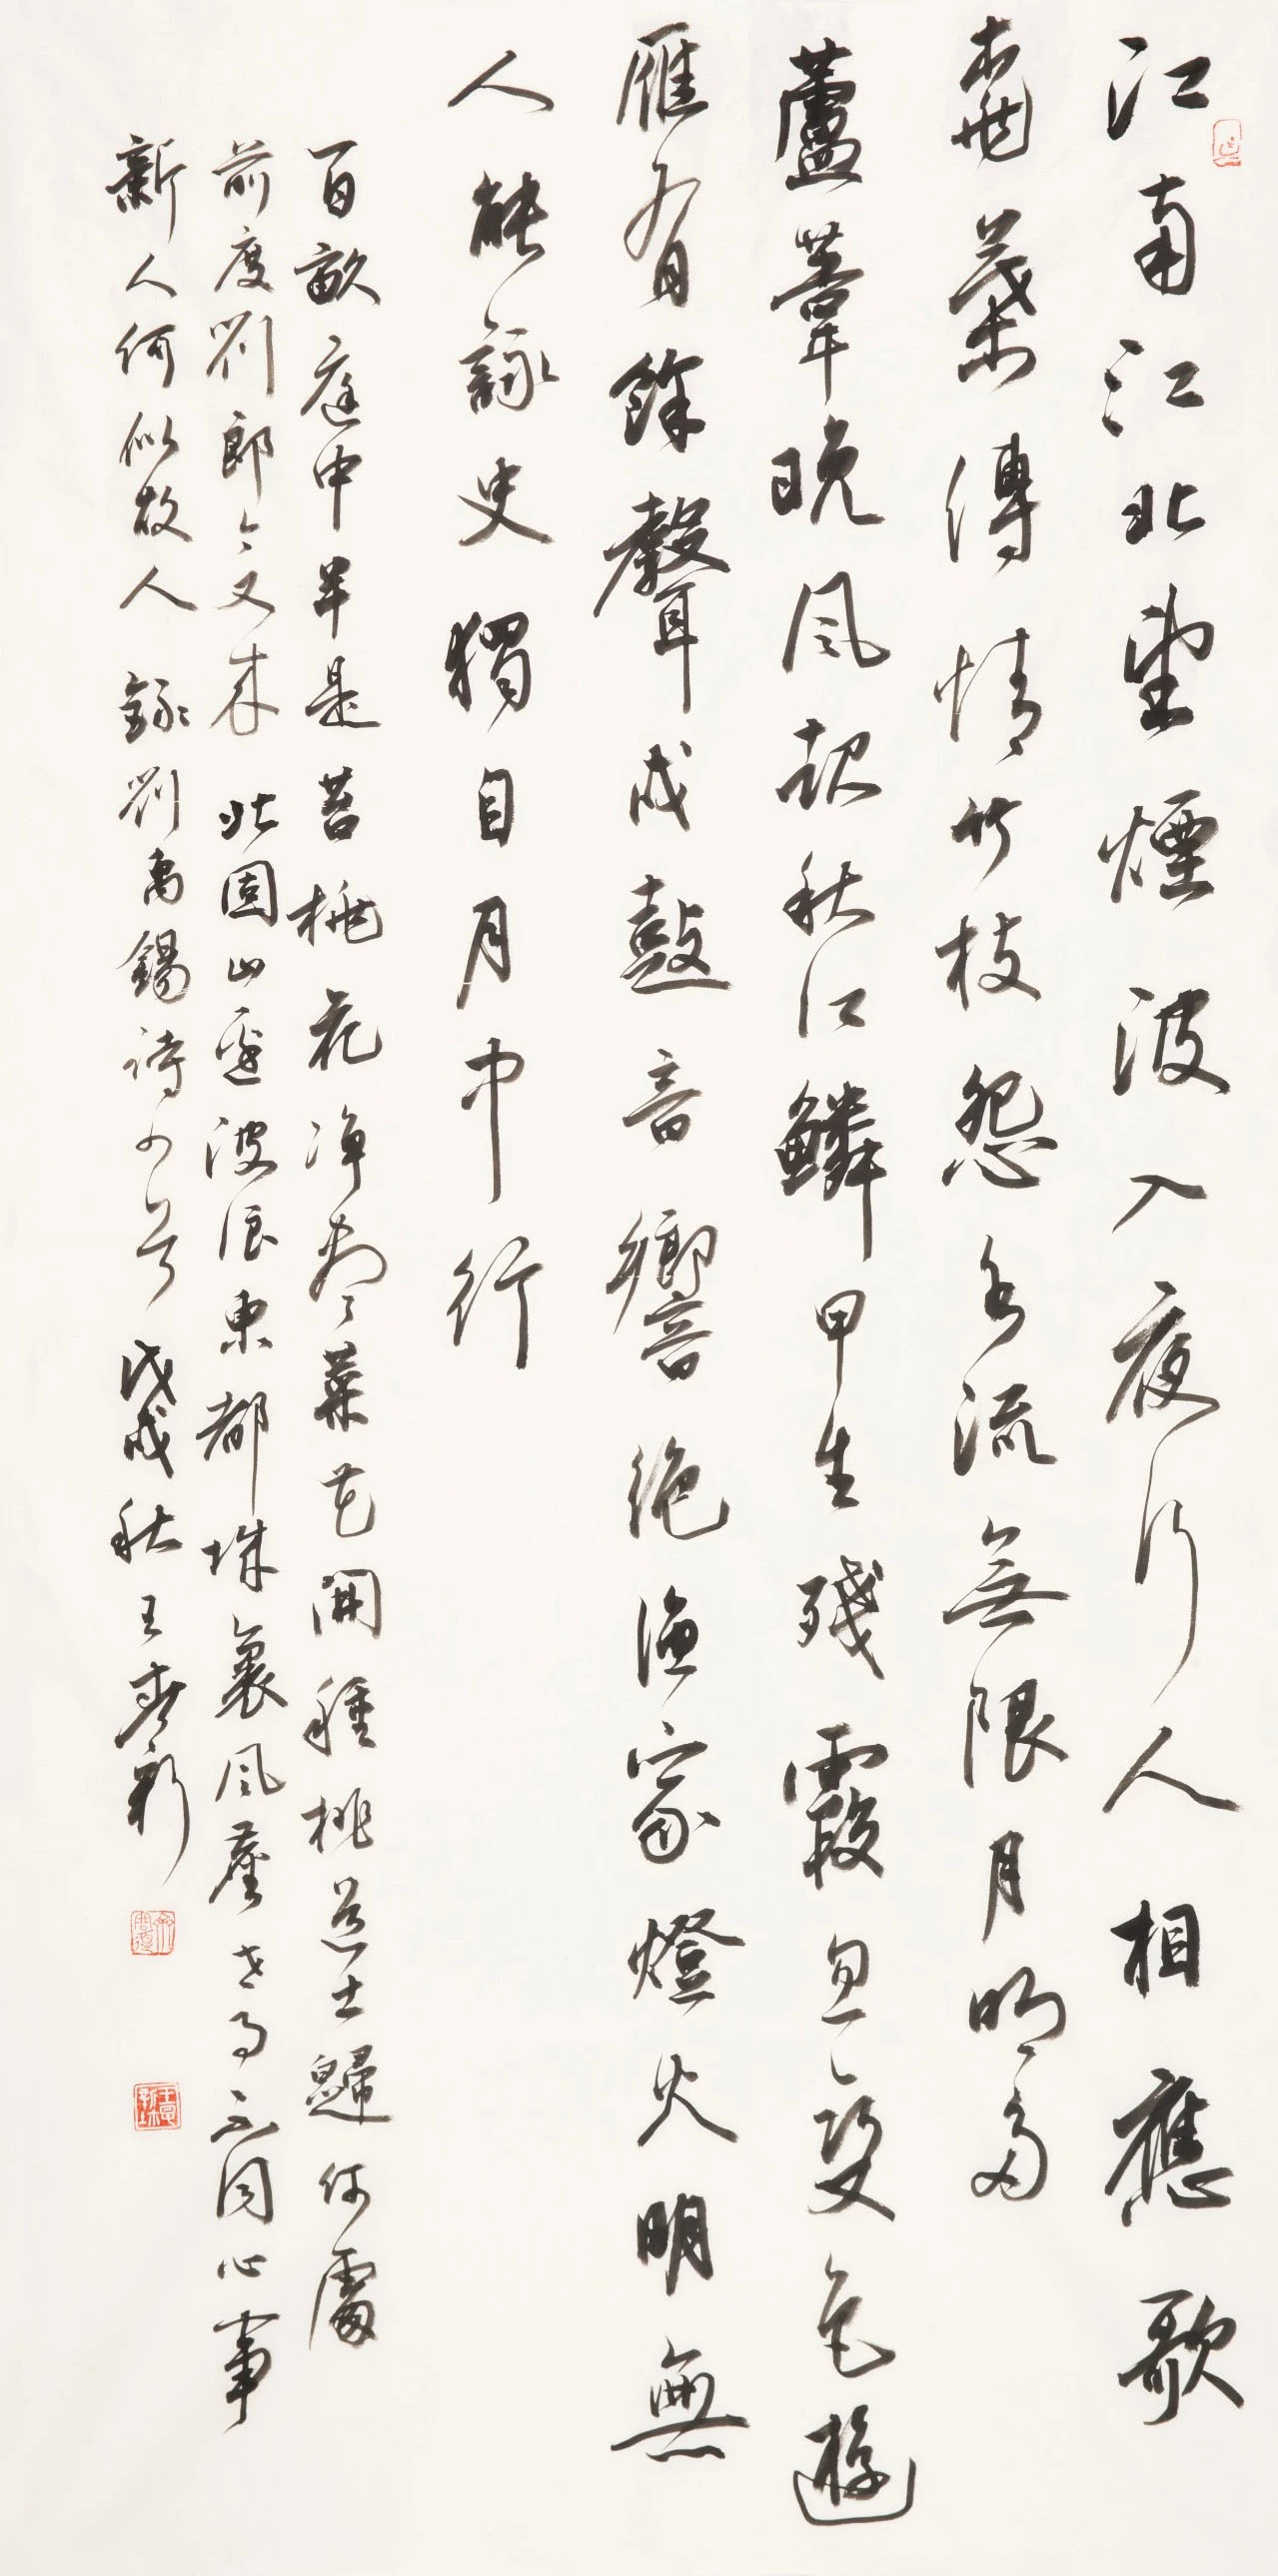 江南江北望煙波入夜行人相應歌
桃葉傳情竹枝怨水流無限月明多
蘆葦晚風起秋江鱗甲生殘霞忽變色遊
雁有餘聲戍鼓音響絶漁家燈火明無
人能詠史獨自月中行
百畝庭中半是苔桃花净盡菜花開種桃道士歸何處
前度劉郎今又來北固山邊波浪東都城裏風塵世事不同心事
新人何似故人錄劉禹錫詩四首戊戌秋王春新